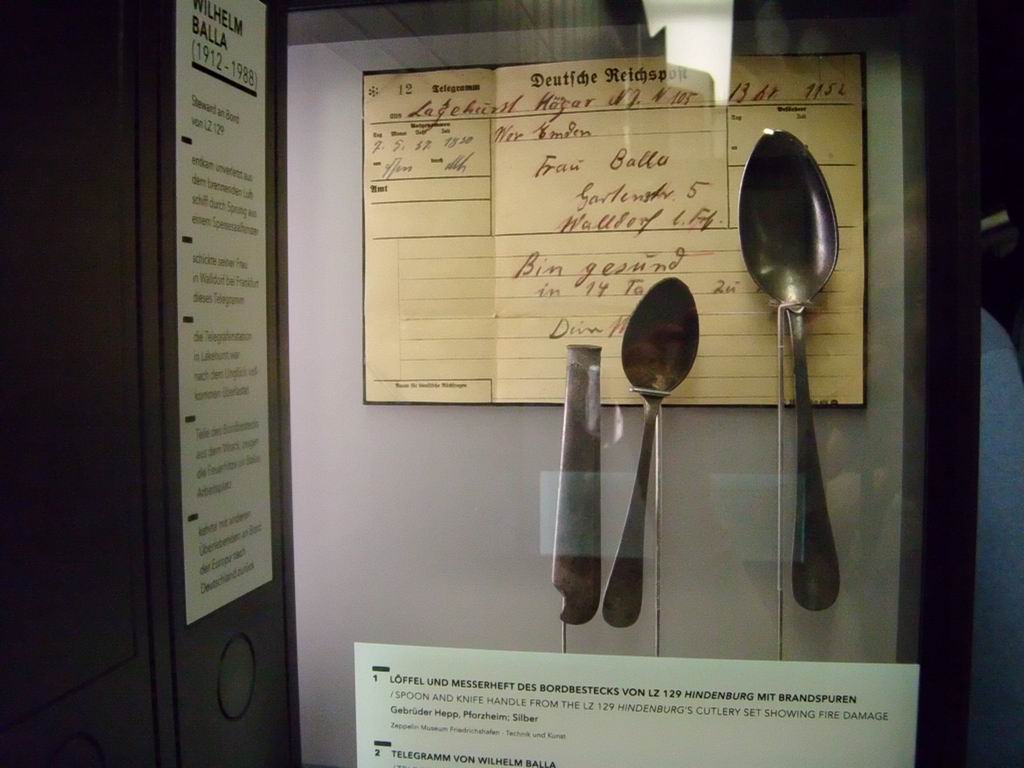 WILHELM
BALLA
(1912-1988)
Steward an Bord
von LZ 129
entkam unverletzt aus
dem brennenden Luft-
schiff durch Sprung aus
einem Speisesaalfenster
schickte seiner Frau
in Walldorf bei Frankfurt
dieses Telegramm
die Telegrafenstation
in Lakehurst war
nach dem Unglück voll-
kommen überlastet
Teile des Bordbestecks
aus dem Wrack, zeugen
Arbeitsplatz
kehrte mit anderen
Überlebenden an Bord
der Europa nach
Deutschland zurück
12 Telegramm Deutsche Reichspost
aus N.J. N 105 13 1152
7. 5. 37 1820
Amt
Frau Balla
Gartenstr. 5
Walldorf
Bin gesund
in 14 Ta zu
Dein
LÖFFEL UND MESSERHEFT DES BORDBESTECKS VON LZ 129 HINDENBURG MIT BRANDSPUREN
1
/ SPOON AND KNIFE HANDLE FROM THE LZ 129 HINDENBURG'S CUTLERY SET SHOWING FIRE DAMAGE
Gebrüder Hepp, Pforzheim; Silber
Zeppelin Museum Friedrichshafen - Technik und Kunst
2 TELEGRAMM VON WILHELM BALLA